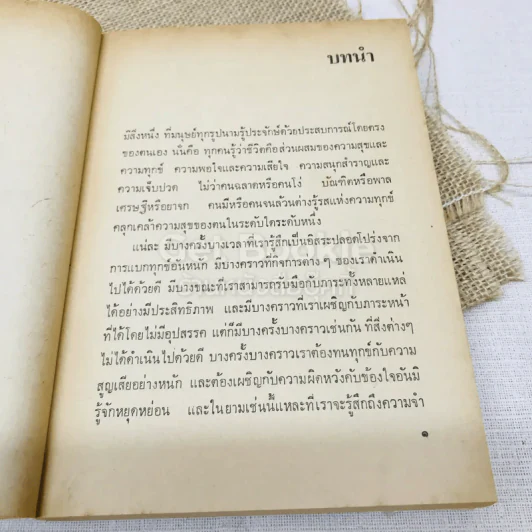 บทนำ
มีสิ่งหนึ่ง ที่มนุษย์ทุกรูปนามรู้ประจักษ์ด้วยประสบการณ์โดยตรง
ของตนเอง นั่นคือ ทุกคนรู้ว่าชีวิตคือส่วนผสมของความสุขและ
ความทุกข์ ความพอใจและความเสียใจ ความสนุกสำราญและ
ความเจ็บปวด ไม่ว่าคนฉลาดหรือคนโง่ บัณฑิตหรือพาล
เศรษฐีหรือยาจก คนมีหรือคนจนล้วนต่างรู้รสแห่งความทุกข์
คลุกเคล้าความสุขของตนในระดับใดระดับหนึ่ง
แน่ละ มีบางครั้งบางเวลาที่เรารู้สึกเป็นอิสระปลอดโปร่งจาก
การแบกทุกข์อันหนัก มีบางคราวที่กิจการต่าง ๆ ของเราดำเนิน
ไปได้ด้วยดี มีบางขณะที่เราสามารถรับมือกับภาระทั้งหลายแหล่
ได้อย่างมีประสิทธิภาพ และมีบางคราวที่เราเผชิญกับภาระหน้า
ที่ได้โดยไม่มีอุปสรรค แต่ก็มีบางครั้งบางคราวเช่นกัน ที่สิ่งต่างๆ
ไม่ได้ดำเนินไปด้วยดี บางครั้งบางคราวเราต้องทนทุกข์กับความ
สูญเสียอย่างหนัก และต้องเผชิญกับความผิดหวังคับข้องใจอันมิ
รู้จักหยุดหย่อน และในยามเช่นนี้แหละที่เราจะรู้สึกถึงความจำ
๑